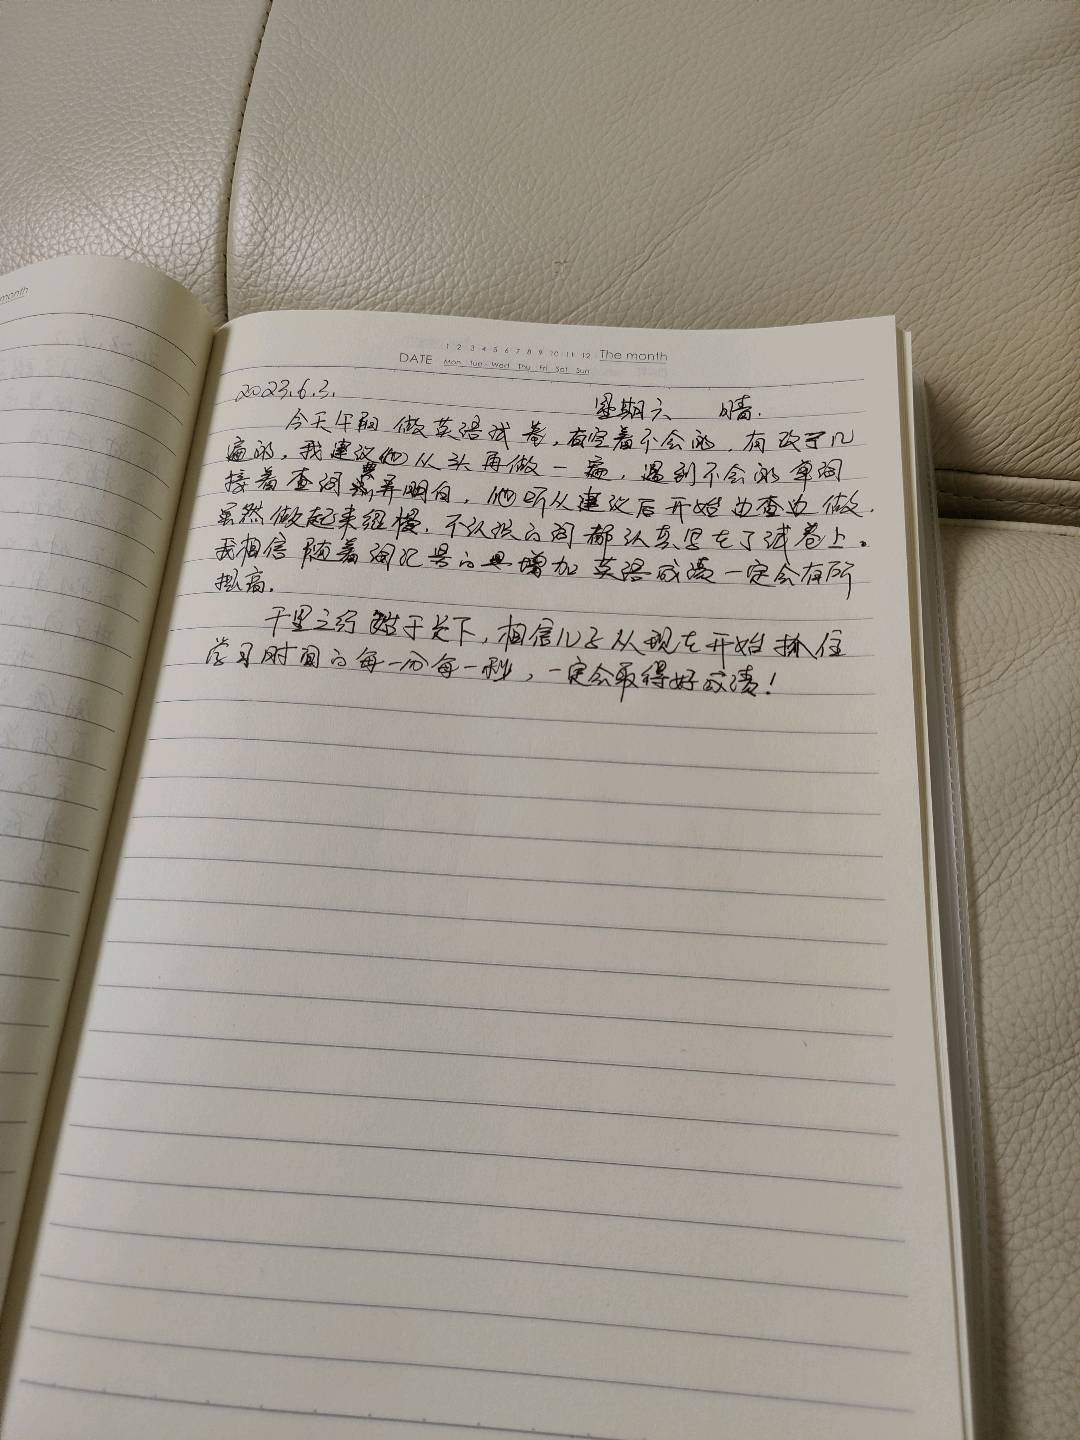 month
1 2 3 4 5 6 7 8 9 10 11 12 The month
DATE Mon Tue Wed Thu Fri Sat Sun
2023.6.3. 星期六 晴.
今天午间做英语试卷,有空着不会的,有改了几
遍的,我建议他从头再做一遍,遇到不会的单词
接着查词典弄明白,他听从建议后开始边查边做.
虽然做起来很慢.不认识的词都认真写在了试卷上。
我相信随着词汇量的增加英语成绩一定会有所
提高.
千里之行始于足下,相信儿子从现在开始抓住
学习时间的每一分每一秒,一定会取得好成绩!